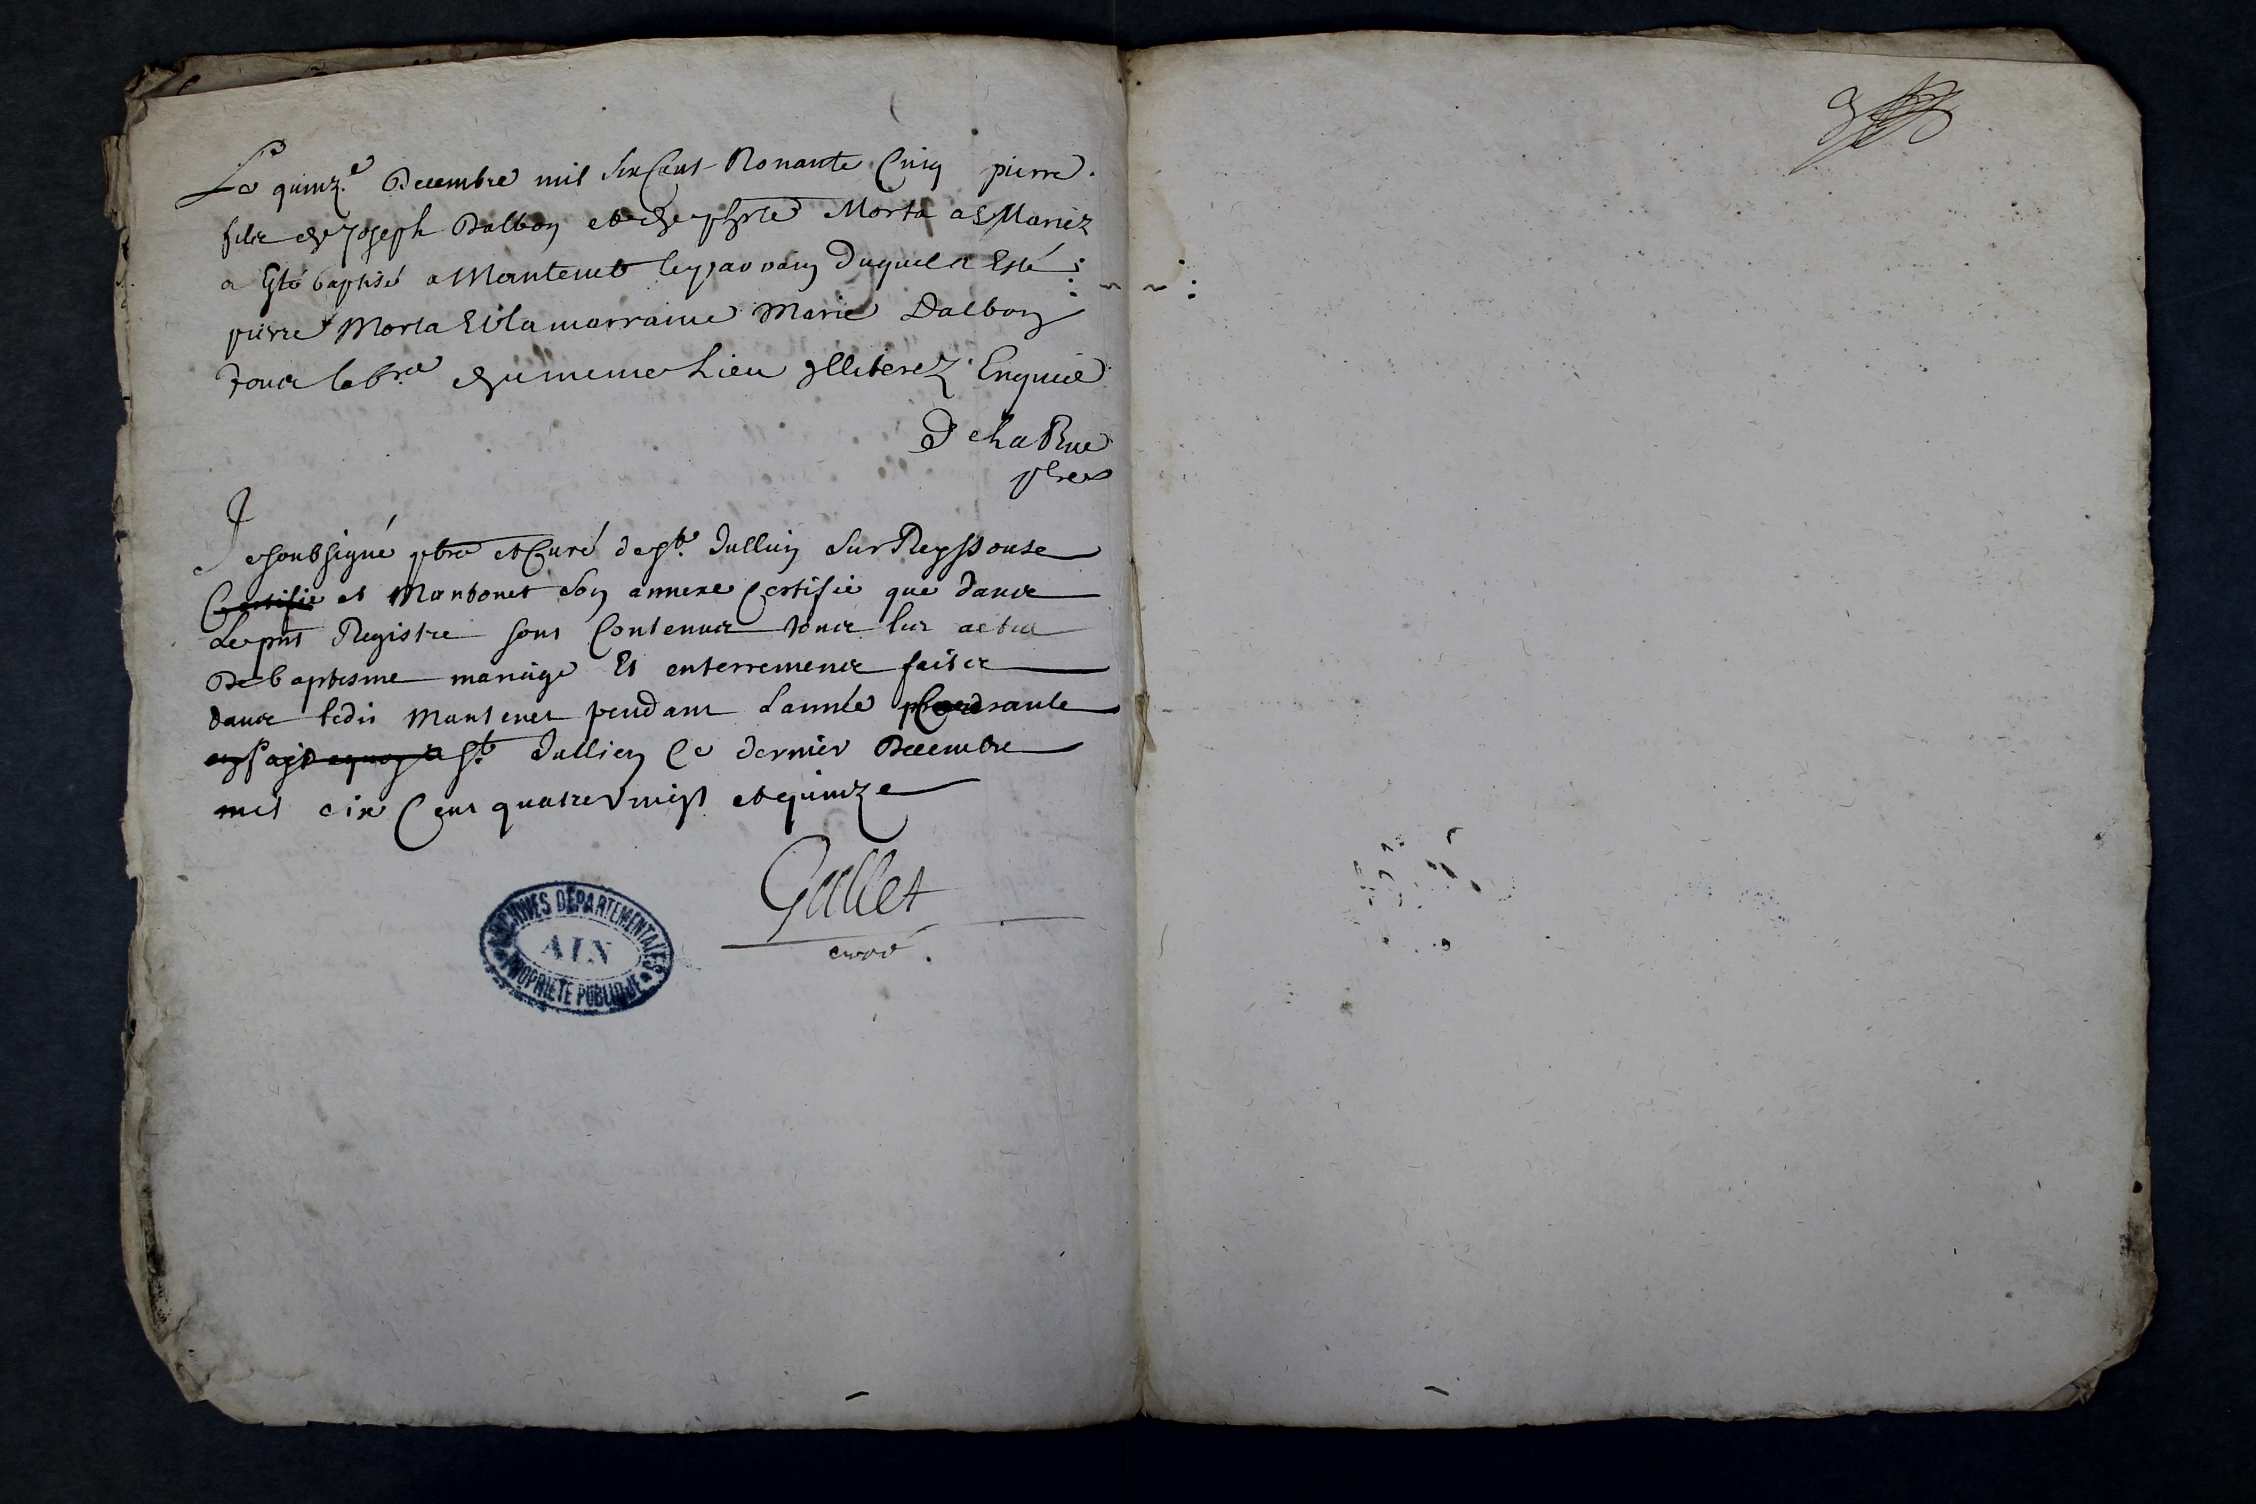 Le quinz.e Decembre mil Six Cent Nonante Cinq pierre
fils de Joseph Dalbon et de Morta Mariez
a Esté baptisé a Mantenet le parrain duquel a Esté
pierre Morta Et la marraine Marie Dalbon
tous lab.rs du meme Lieu Illiterez Enquis
De La Rue
pbre
Je soubsigné pbre et Curé de St. Jullien Sur Reyssouse
Certifie et Mantonet son annexe Certifie que dans
Le pnt Registre sont Contenus tous les actes
De baptesme mariage Et enterremens faits
dans ledit Mantenet pendant L'année
St. Jullien Ce dernier Decembre
mil six Cent quatre vingt et quinze
Gallet
curé.
ARCHIVES DÉPARTEMENTALES
AIN
PROPRIÉTÉ PUBLIQUE